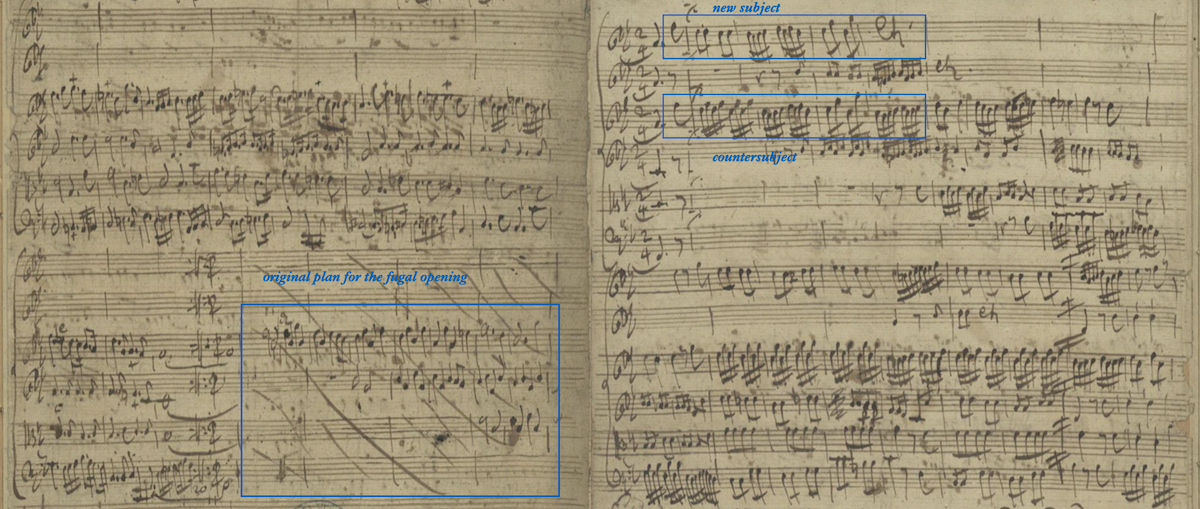 original plan for the fugal opening
new subject
countersubject